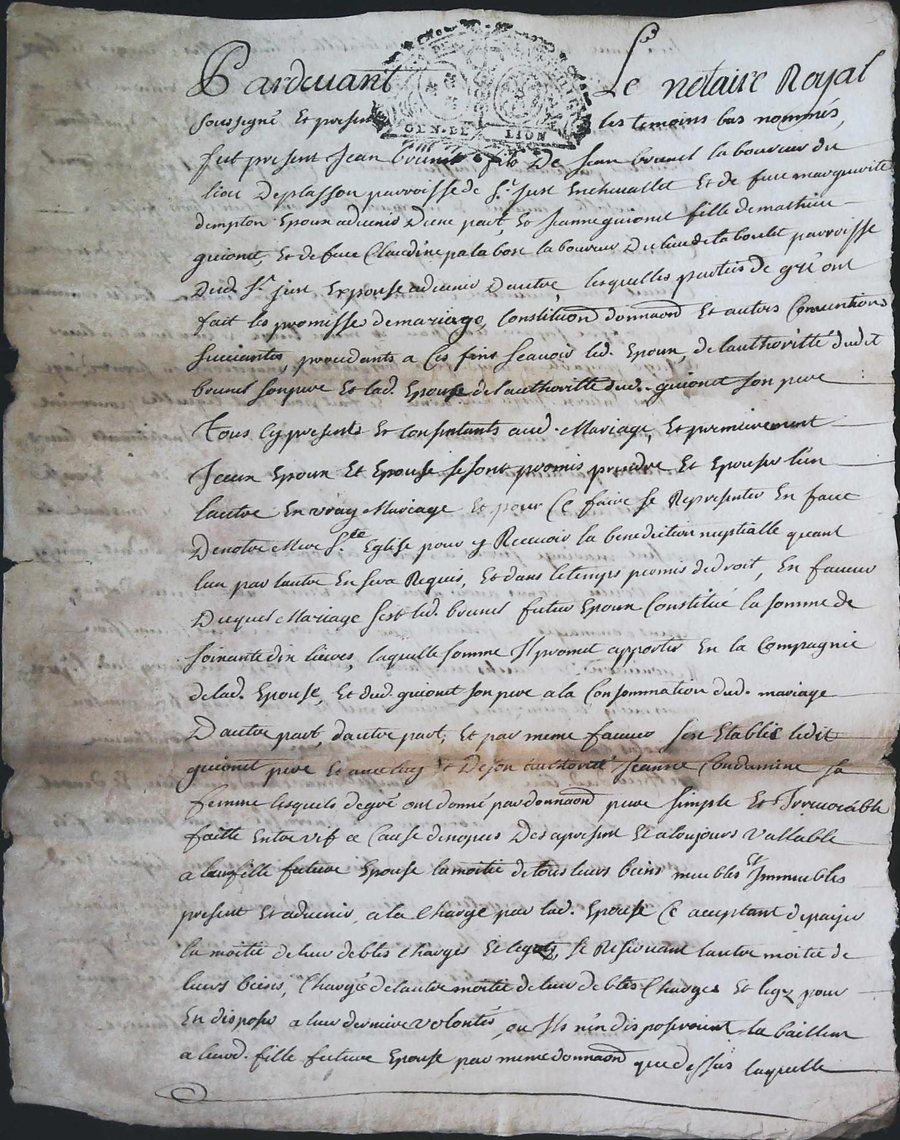 Pardevant Le notaire Royal
GEN. DE LION
soussigné Et present les temoins bas nommés,
fut present Jean brunel fils De Jean brunel laboureur du
lieu Deplasson parroisse de St. Just Enchevallet Et de feue marguerite
Epoux advenir Dune part, Et Jeanne guionet fille de mathieu
guionet, Et de feue Claudine palabost laboureur Du lieu de la boulet parroisse
Dud. St. just Expouse advenir Dautre lesquelles parties de gré ont
fait les promisse de mariage, Constitution donnaon Et autres Conventions
suivantes, procedants a Ces fins scavoir led. Epoux, de lauthoritté dudt
brunel son pere Et lad. Epouse de lauthoritté dud. guionet son pere
Tous Cy presents Et Consentants aud. Mariage, Et premierement
Iceux Epoux Et Epouse se sont promis prendre Et Epouser lun
lautre En vray Mariage Et pour Ce faire se Representer En face
De notre Mere Ste. Eglise pour y Recevoir la benediction nuptialle quant
lun par lautre En sera Requis, Et dans le temps permis de droit, En faveur
Duquel Mariage sest led. brunel futur Epoux Constitué la somme de
soixante dix livres, laquelle somme Il promet apporter En la Compagnie
de lad. Epouse, Et dud. guionet son pere a la Consommation dud. mariage
Dautre part, dautre part, Et par meme faveur sest Etablis ledit
guionet pere Et avec luy Et De son authorité Jeanne Condamine sa
femme lesquels de gré ont donné par donnaon pure simple Et Irrevocable
faitte Entre vif a Cause de nopces Des apresent Et a toujours vallable
a leur fille future Epouse la moitié de tous leurs biens meubles Et Immeubles
present Et advenir, a la Charge par lad. Epouse Ce aceptant de paÿer
la moitié de leur debtes Charges Et legats, se Reservant lautre moitié de
leurs biens, Chargé de lautre moitié de leur debtes Charges Et legz pour
En disposer a leur derniere volontés, ou Ils nen disposeroient la bailleur
a leurd. fille future Epouse par meme donnaon que dessus laquelle